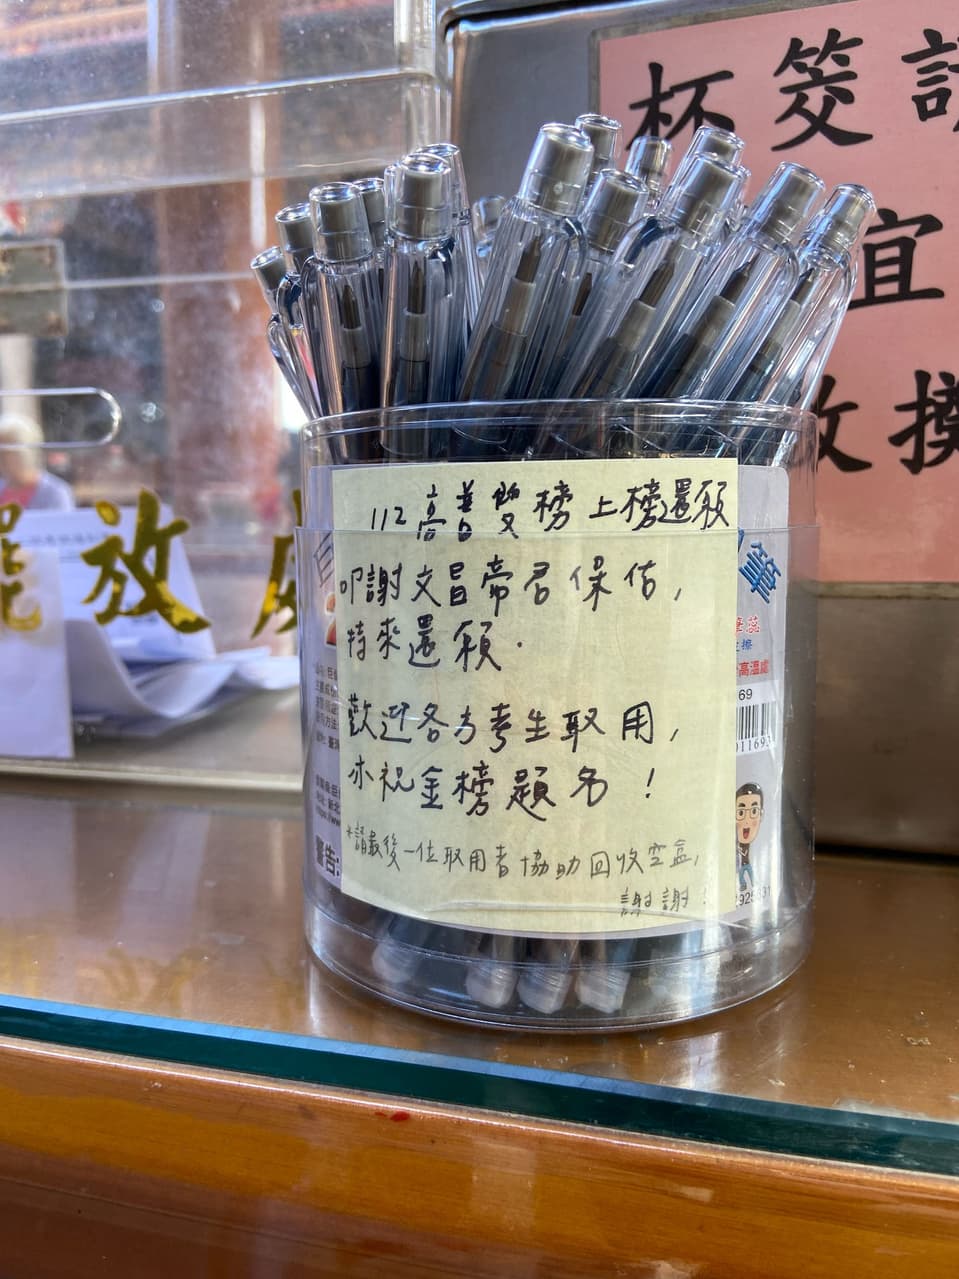 杯筊請
宜
放
112高普雙榜上榜還願
叩謝文昌帝君保佑,
特來還願.
歡迎各方考生取用,
亦祝金榜題名!
*請最後一位取用者協助回收空盒,
謝謝
筆
高溫處
69
警告: